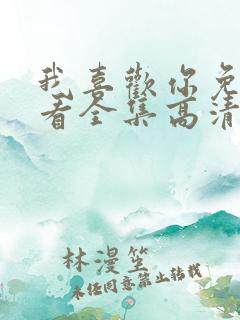 我喜歡你免
看全集高清
林漫笙
未经同意禁止转载